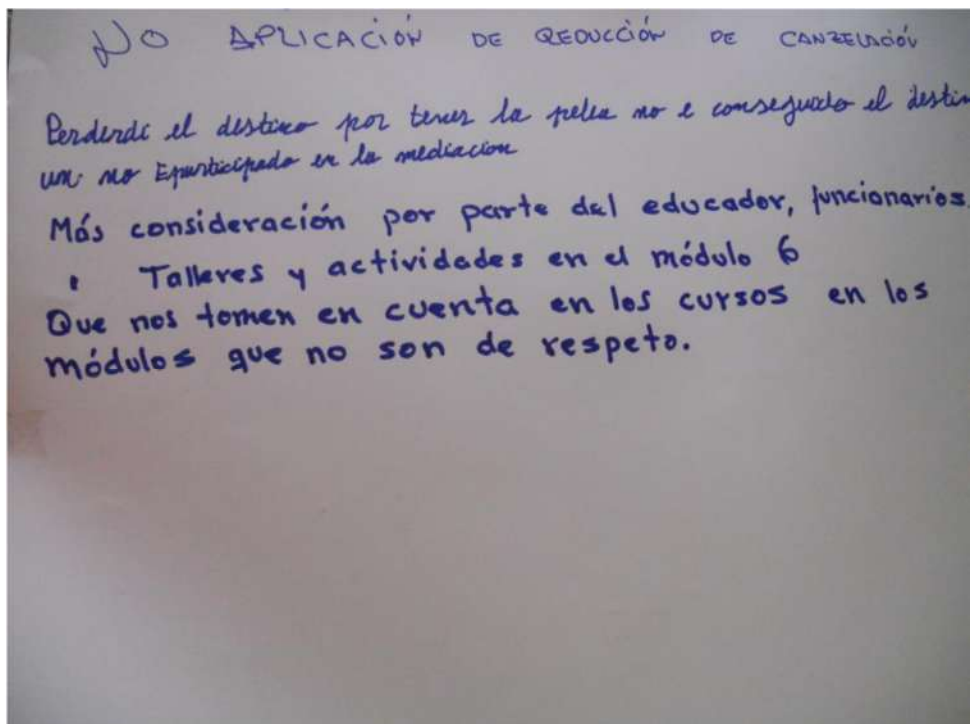 NO APLICACIÓN DE REDUCCIÓN DE CANZELACIÓN
Perderdi el destino por tener la pelea no e conseguido el destin
un no E participado en la mediacion
Más consideración por parte del educador, funcionarios.
• Talleres y actividades en el módulo 6
Que nos tomen en cuenta en los cursos en los
módulos que no son de respeto.